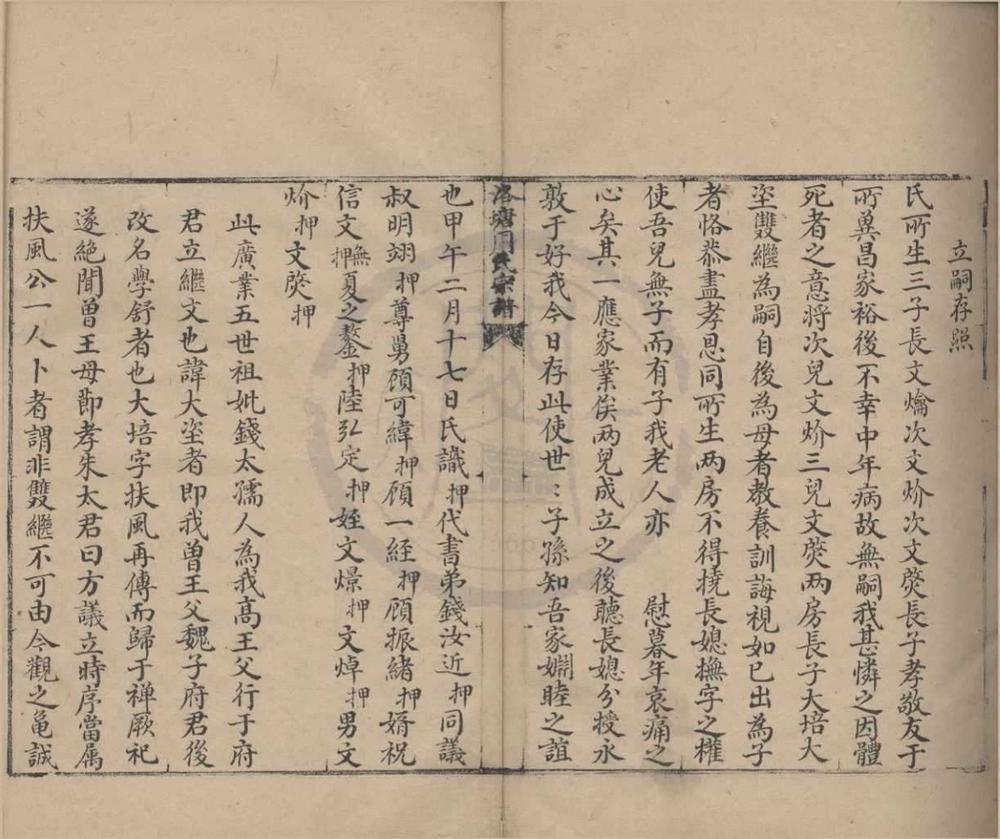 立嗣存照
氏所生三子長文爚次文炌次文燛長子孝敬友于
所冀昌家裕後不幸中年病故無嗣我甚憐之因體
死者之意將次兒文炌三兒文燛两房長子大培大
垐雙繼為嗣自後為母者教養訓誨視如已出為子
者恪恭盡孝恩同所生两房不得撓長媳撫字之權
使吾兒無子而有子我老人亦 慰暮年哀痛之
心矣其一應家業俟两兒成立之後聽長媳分授永
敦于好我今日存此使世〻子孫知吾家婣睦之誼
洛塘周氏宗譜
也甲午二月十七日氏識押代書弟錢汝近押同議
叔明翊押尊舅顧可緯押顧一経押顧振緒押婿祝
信文撫押夏之鏊押陸弘定押姪文燝押文焯押男文
炌押文燛押
此廣業五世祖妣錢太孺人為我髙王父行于府
君立繼文也諱大垐者即我曽王父魏子府君後
改名學舒者也大培字扶風再傳而歸于禅厥祀
遂絶聞曽王母節孝朱太君曰方議立時序當属
扶風公一人卜者謂非雙繼不可由今觀之亀誠